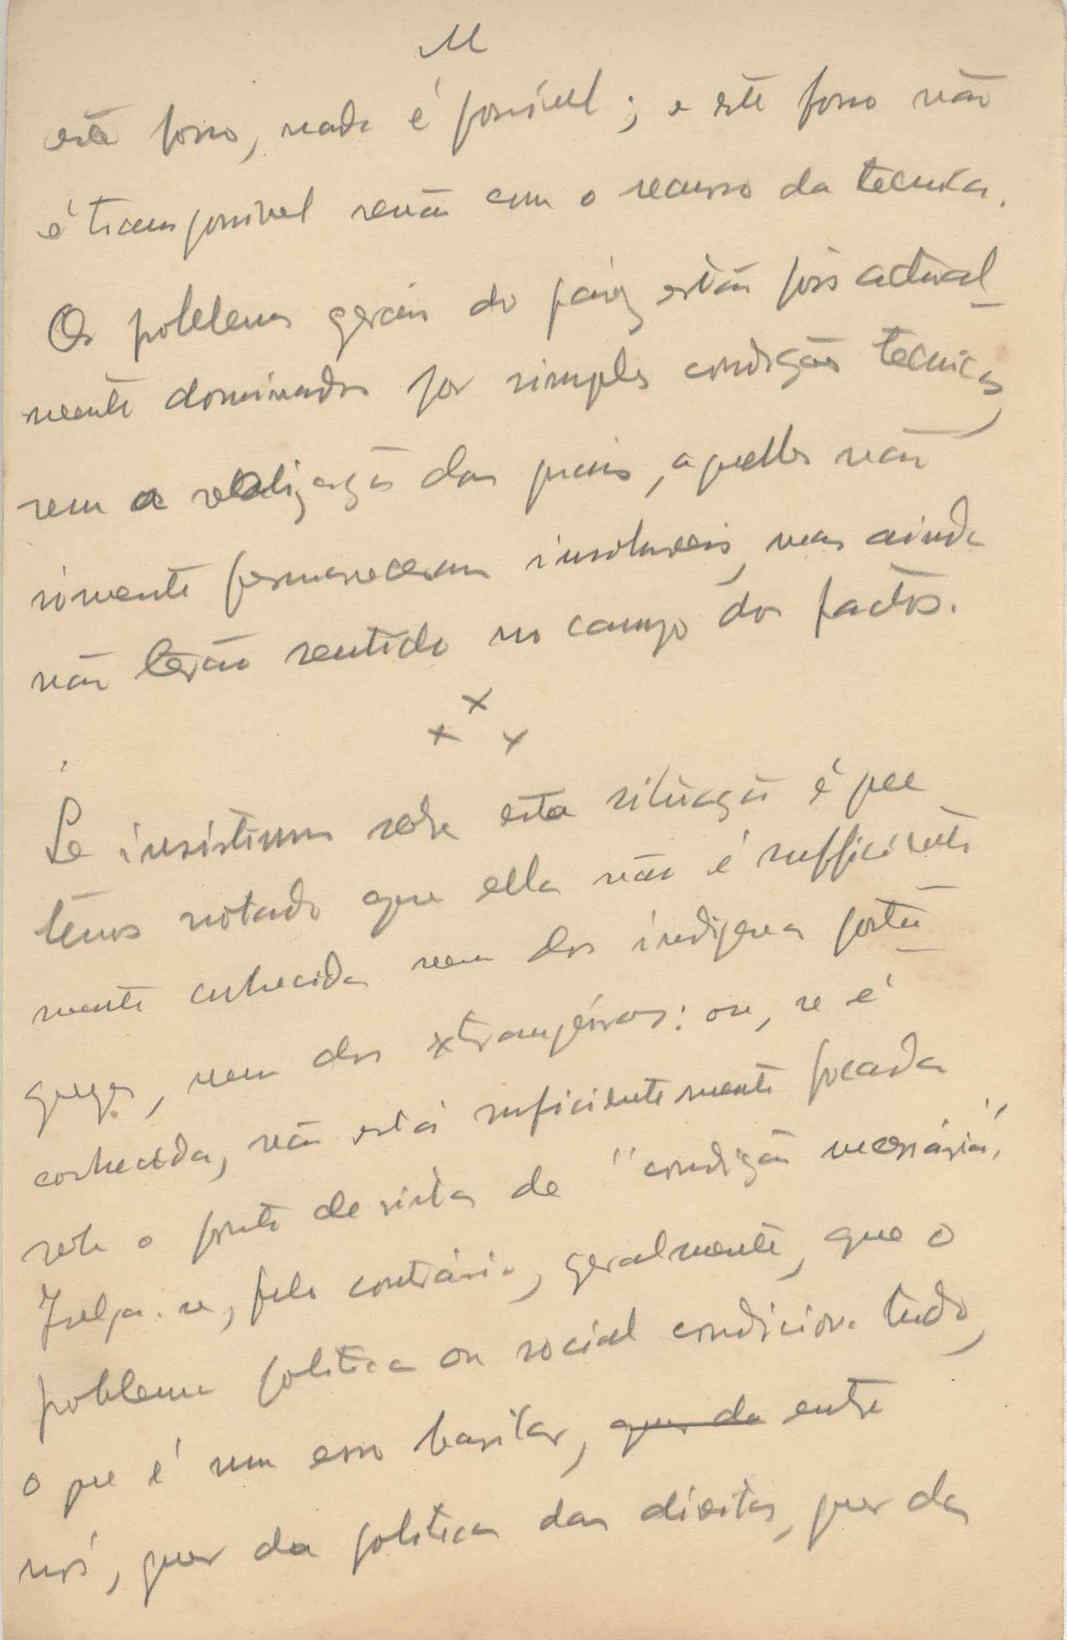 M
este fosso, nada é possivel; e este fosso não
é transponivel senão com o recurso da tecnica.
Os problemas geraes do paiz estão pois actual-
mente dominados por simples condições tecnicas,
sem a realização das quais, aquelles não
sómente permanecerão insoluveis, mas ainda
não terão sentido no campo dos factos.
x x x
Se insistimos sobre esta situação é que
temos notado que ella não é sufficiente
mente conhecida nem dos indigenas portu-
guezes, nem dos extrangeiros: ou, se é
conhecida, não está suficientemente focada
sob o ponto de vista de "condição necessária".
Julga-se, pelo contrário, geralmente, que o
problema politico ou social condiciona tudo,
o que é um erro basilar, quer da entre
nós, quer da politica das direitas, quer da